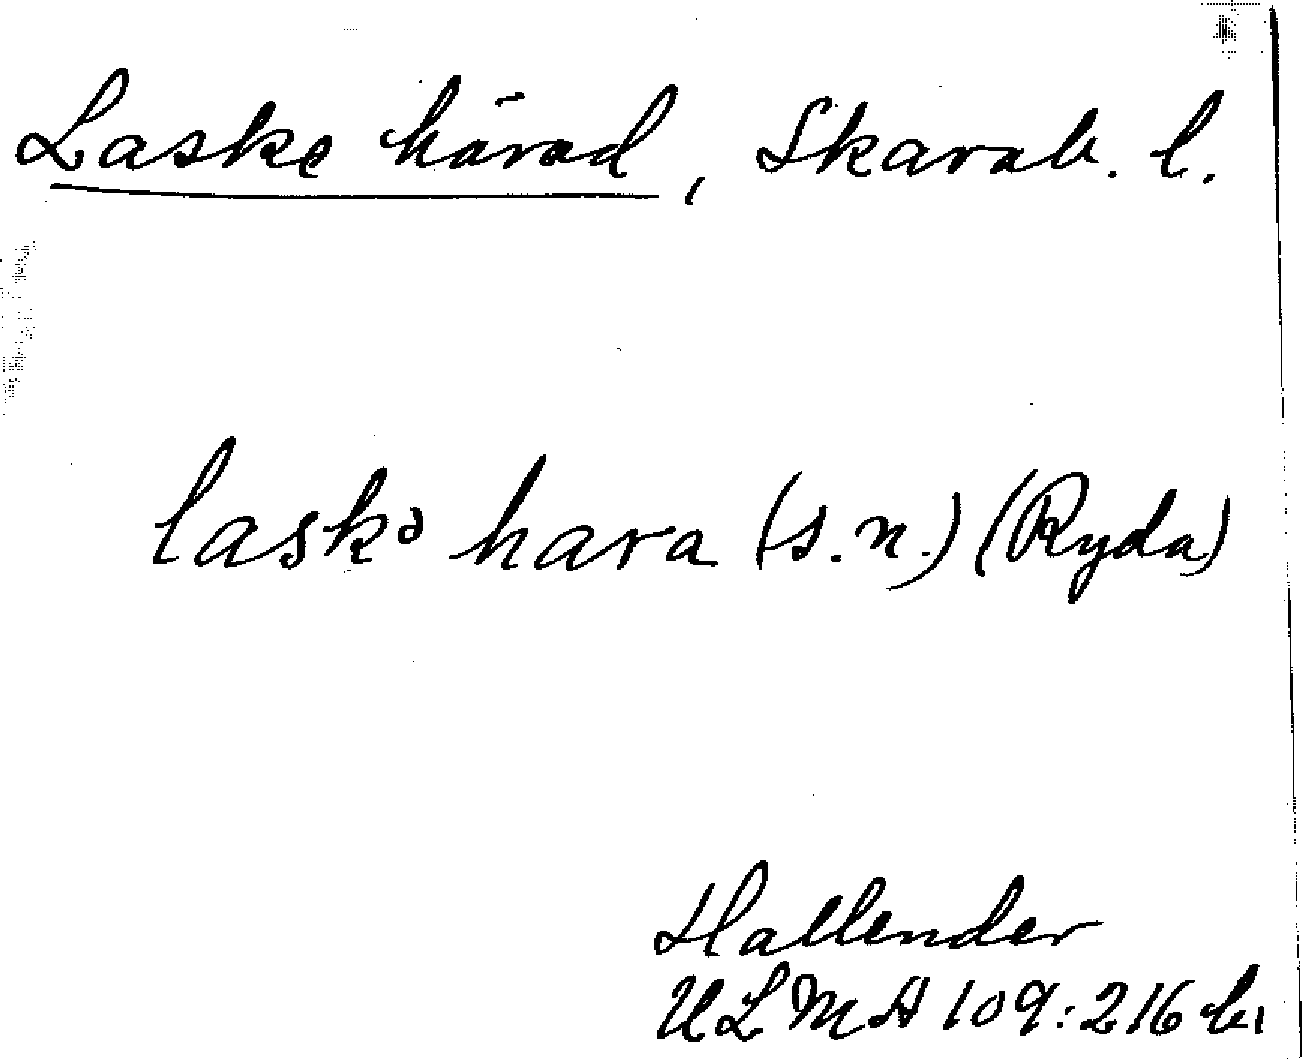 Laske härad, Skarab. l.
laskə hara (s.n.) (Ryda)
Hallender
ULMA 109:216 b1